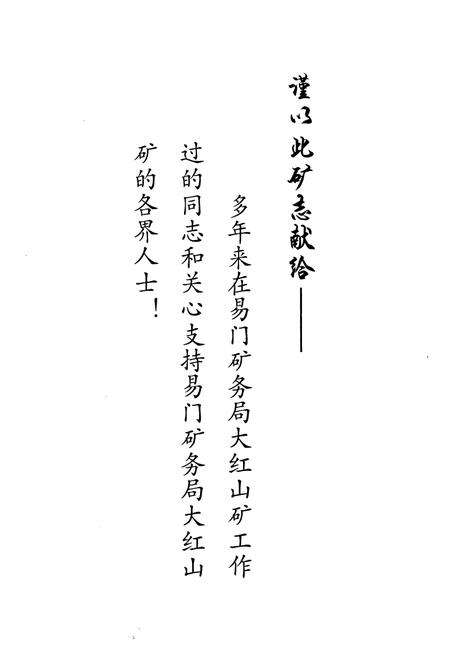 谨以此矿志献给——
多年来在易门矿务局大红山矿工作
过的同志和关心支持易门矿务局大红山
矿的各界人士！